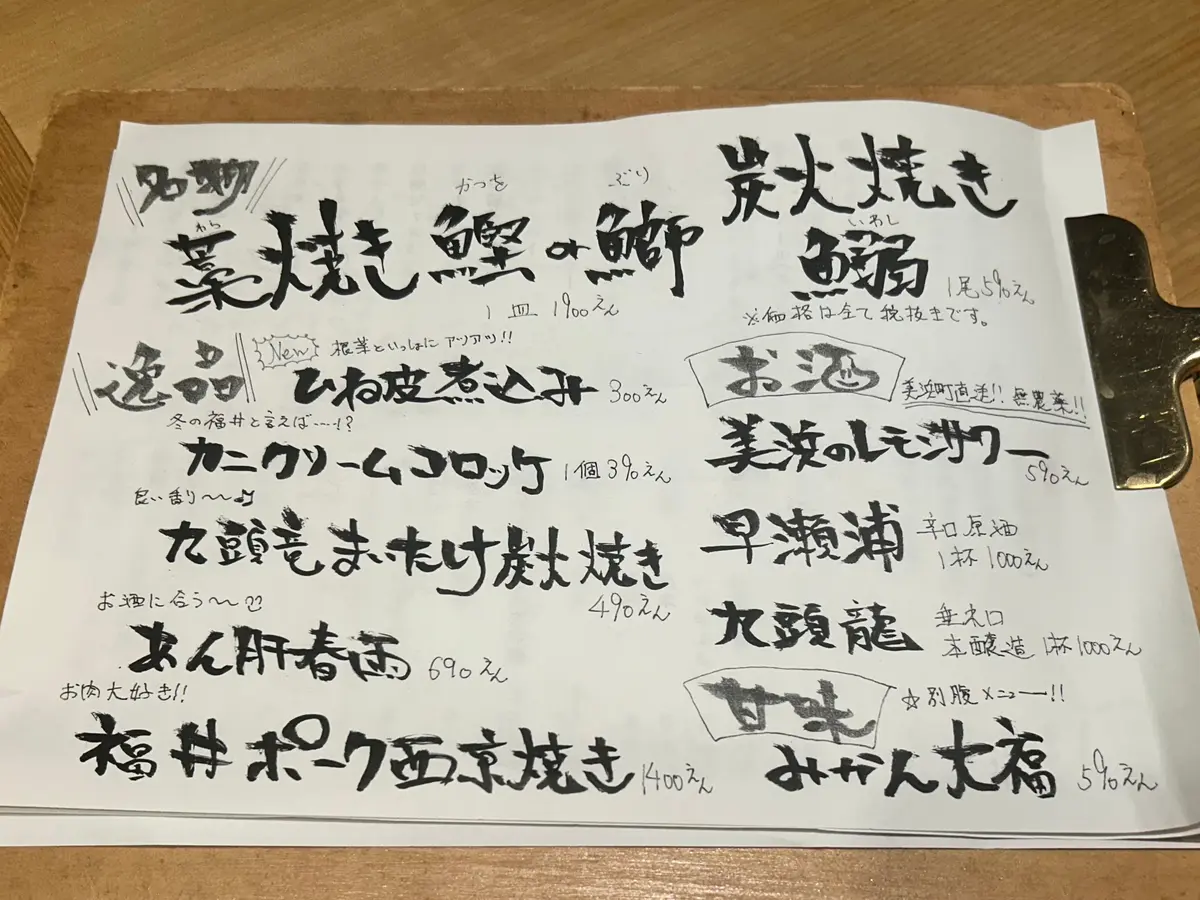 名物
かつを
ぶり
わら
藁焼き鰹or鰤
1皿 1900えん
炭火焼き
いわし
鰯
1尾590えん
※価格は全て税抜きです。
逸品
New 根菜といっしょに アツアツ!!
ひね皮煮込み 300えん
冬の福井と言えば……!?
カニクリームコロッケ 1個390えん
良い香り〜〜♪
九頭竜まいたけ炭火焼き
490えん
お酒に合う〜〜
あん肝春雨 690えん
お肉大好き!!
福井ポーク西京焼き 1400えん
お酒
美浜町直送!! 無農薬!!
美浜のレモンサワー
590えん
早瀬浦 辛口原酒
1杯 1000えん
九頭龍 垂れ口
本醸造 1杯1000えん
甘味 ☆別腹メニュー!!
みかん大福 590えん